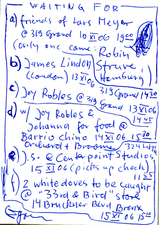 WAITING FOR
a) friends of Lars Meyer
@ 319 Grand 10 XI 06 19
(only one came: Robin
b) James Lindon Struve
(London) 13 XI 06 Hamburg)
c) Joy Robles @ 319 Grand 14 XI
d) w/ Joy Robles & 14 45
Johanna for food @
Barrio Chino 14 XI 06 15
Orchard & Broome
e) J.S. @ Centerpoint Studios
15 XI 06 (picks up check)
f) 2 white doves to be caught
@ "33rd & Bird" store
14 Bruckner Blvd Bronx
15 XI 06 15